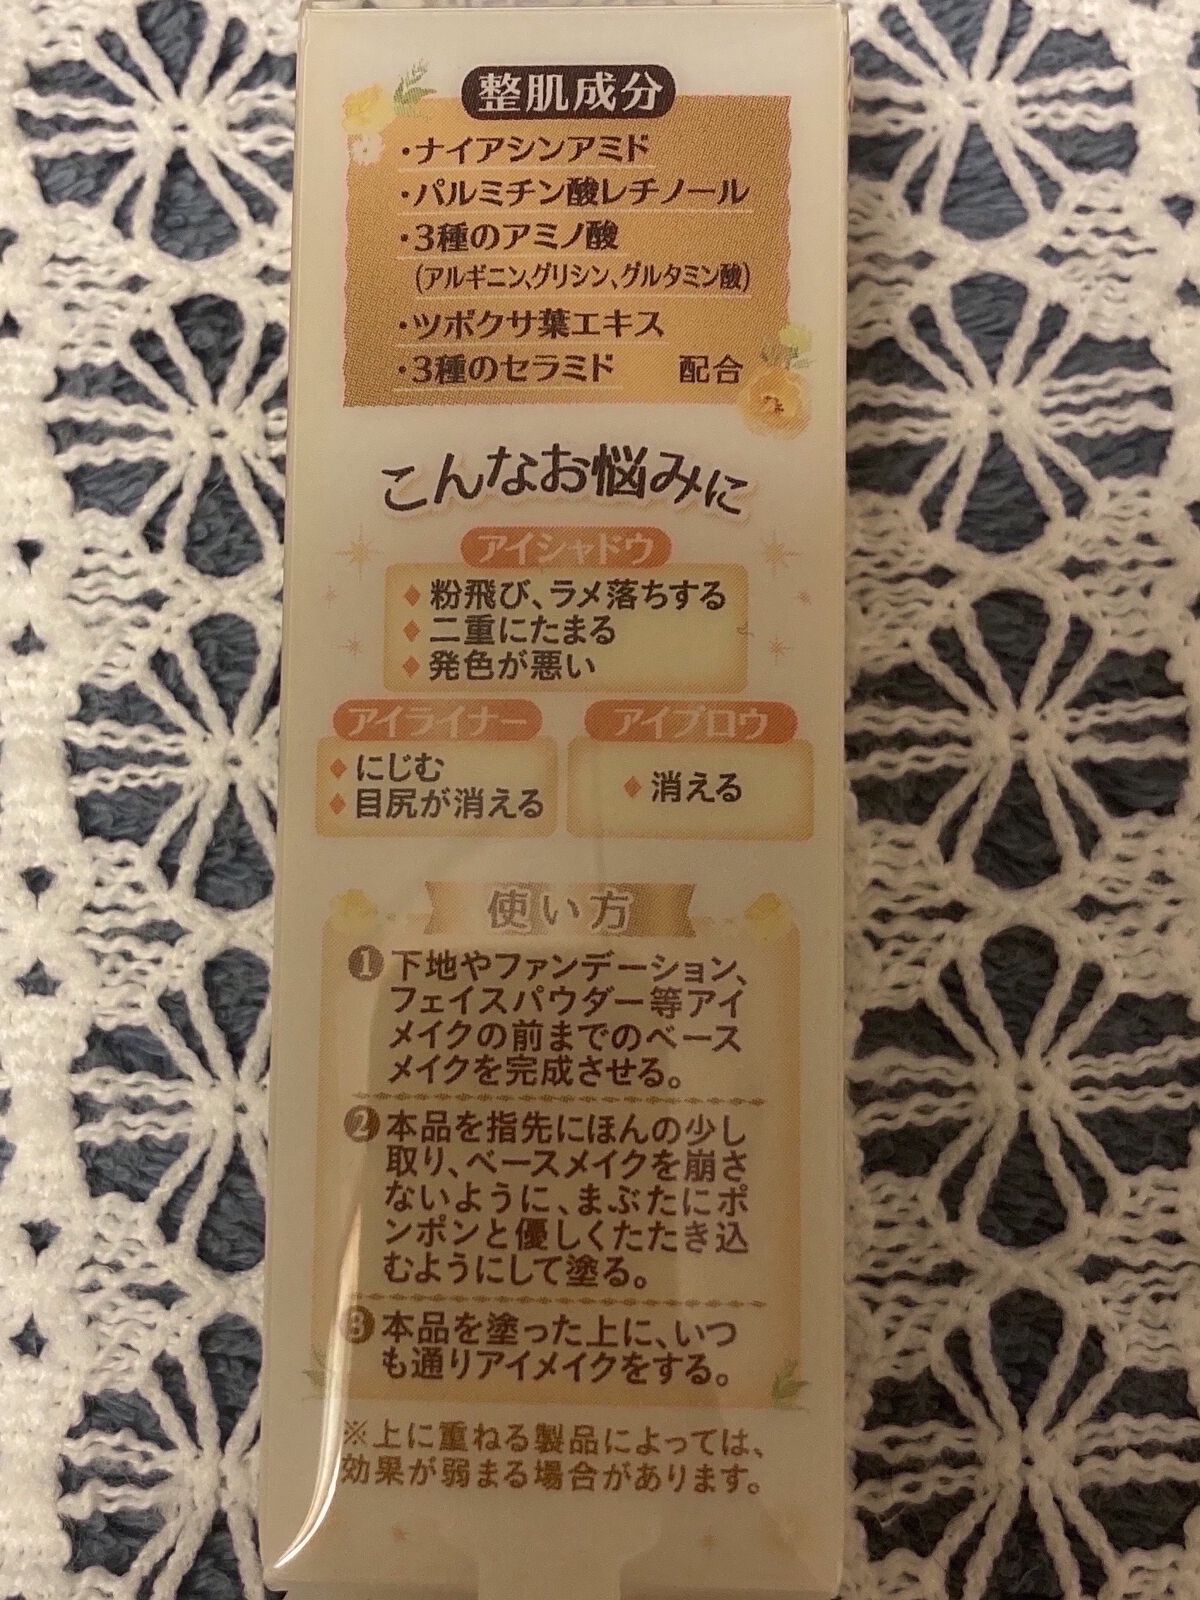 整肌成分
・ナイアシンアミド
・パルミチン酸レチノール
・3種のアミノ酸
(アルギニン、グリシン、グルタミン酸)
・ツボクサ葉エキス
・3種のセラミド 配合
こんなお悩みに
アイシャドウ
◆粉飛び、ラメ落ちする
◆二重にたまる
◆発色が悪い
アイライナー
◆にじむ
◆目尻が消える
アイブロウ
◆消える
使い方
❶下地やファンデーション、
フェイスパウダー等アイ
メイクの前までのベース
メイクを完成させる。
❷本品を指先にほんの少し
取り、ベースメイクを崩さ
ないように、まぶたにポ
ンポンと優しくたたき込
むようにして塗る。
❸本品を塗った上に、いつ
も通りアイメイクをする。
※上に重ねる製品によっては、
効果が弱まる場合があります。